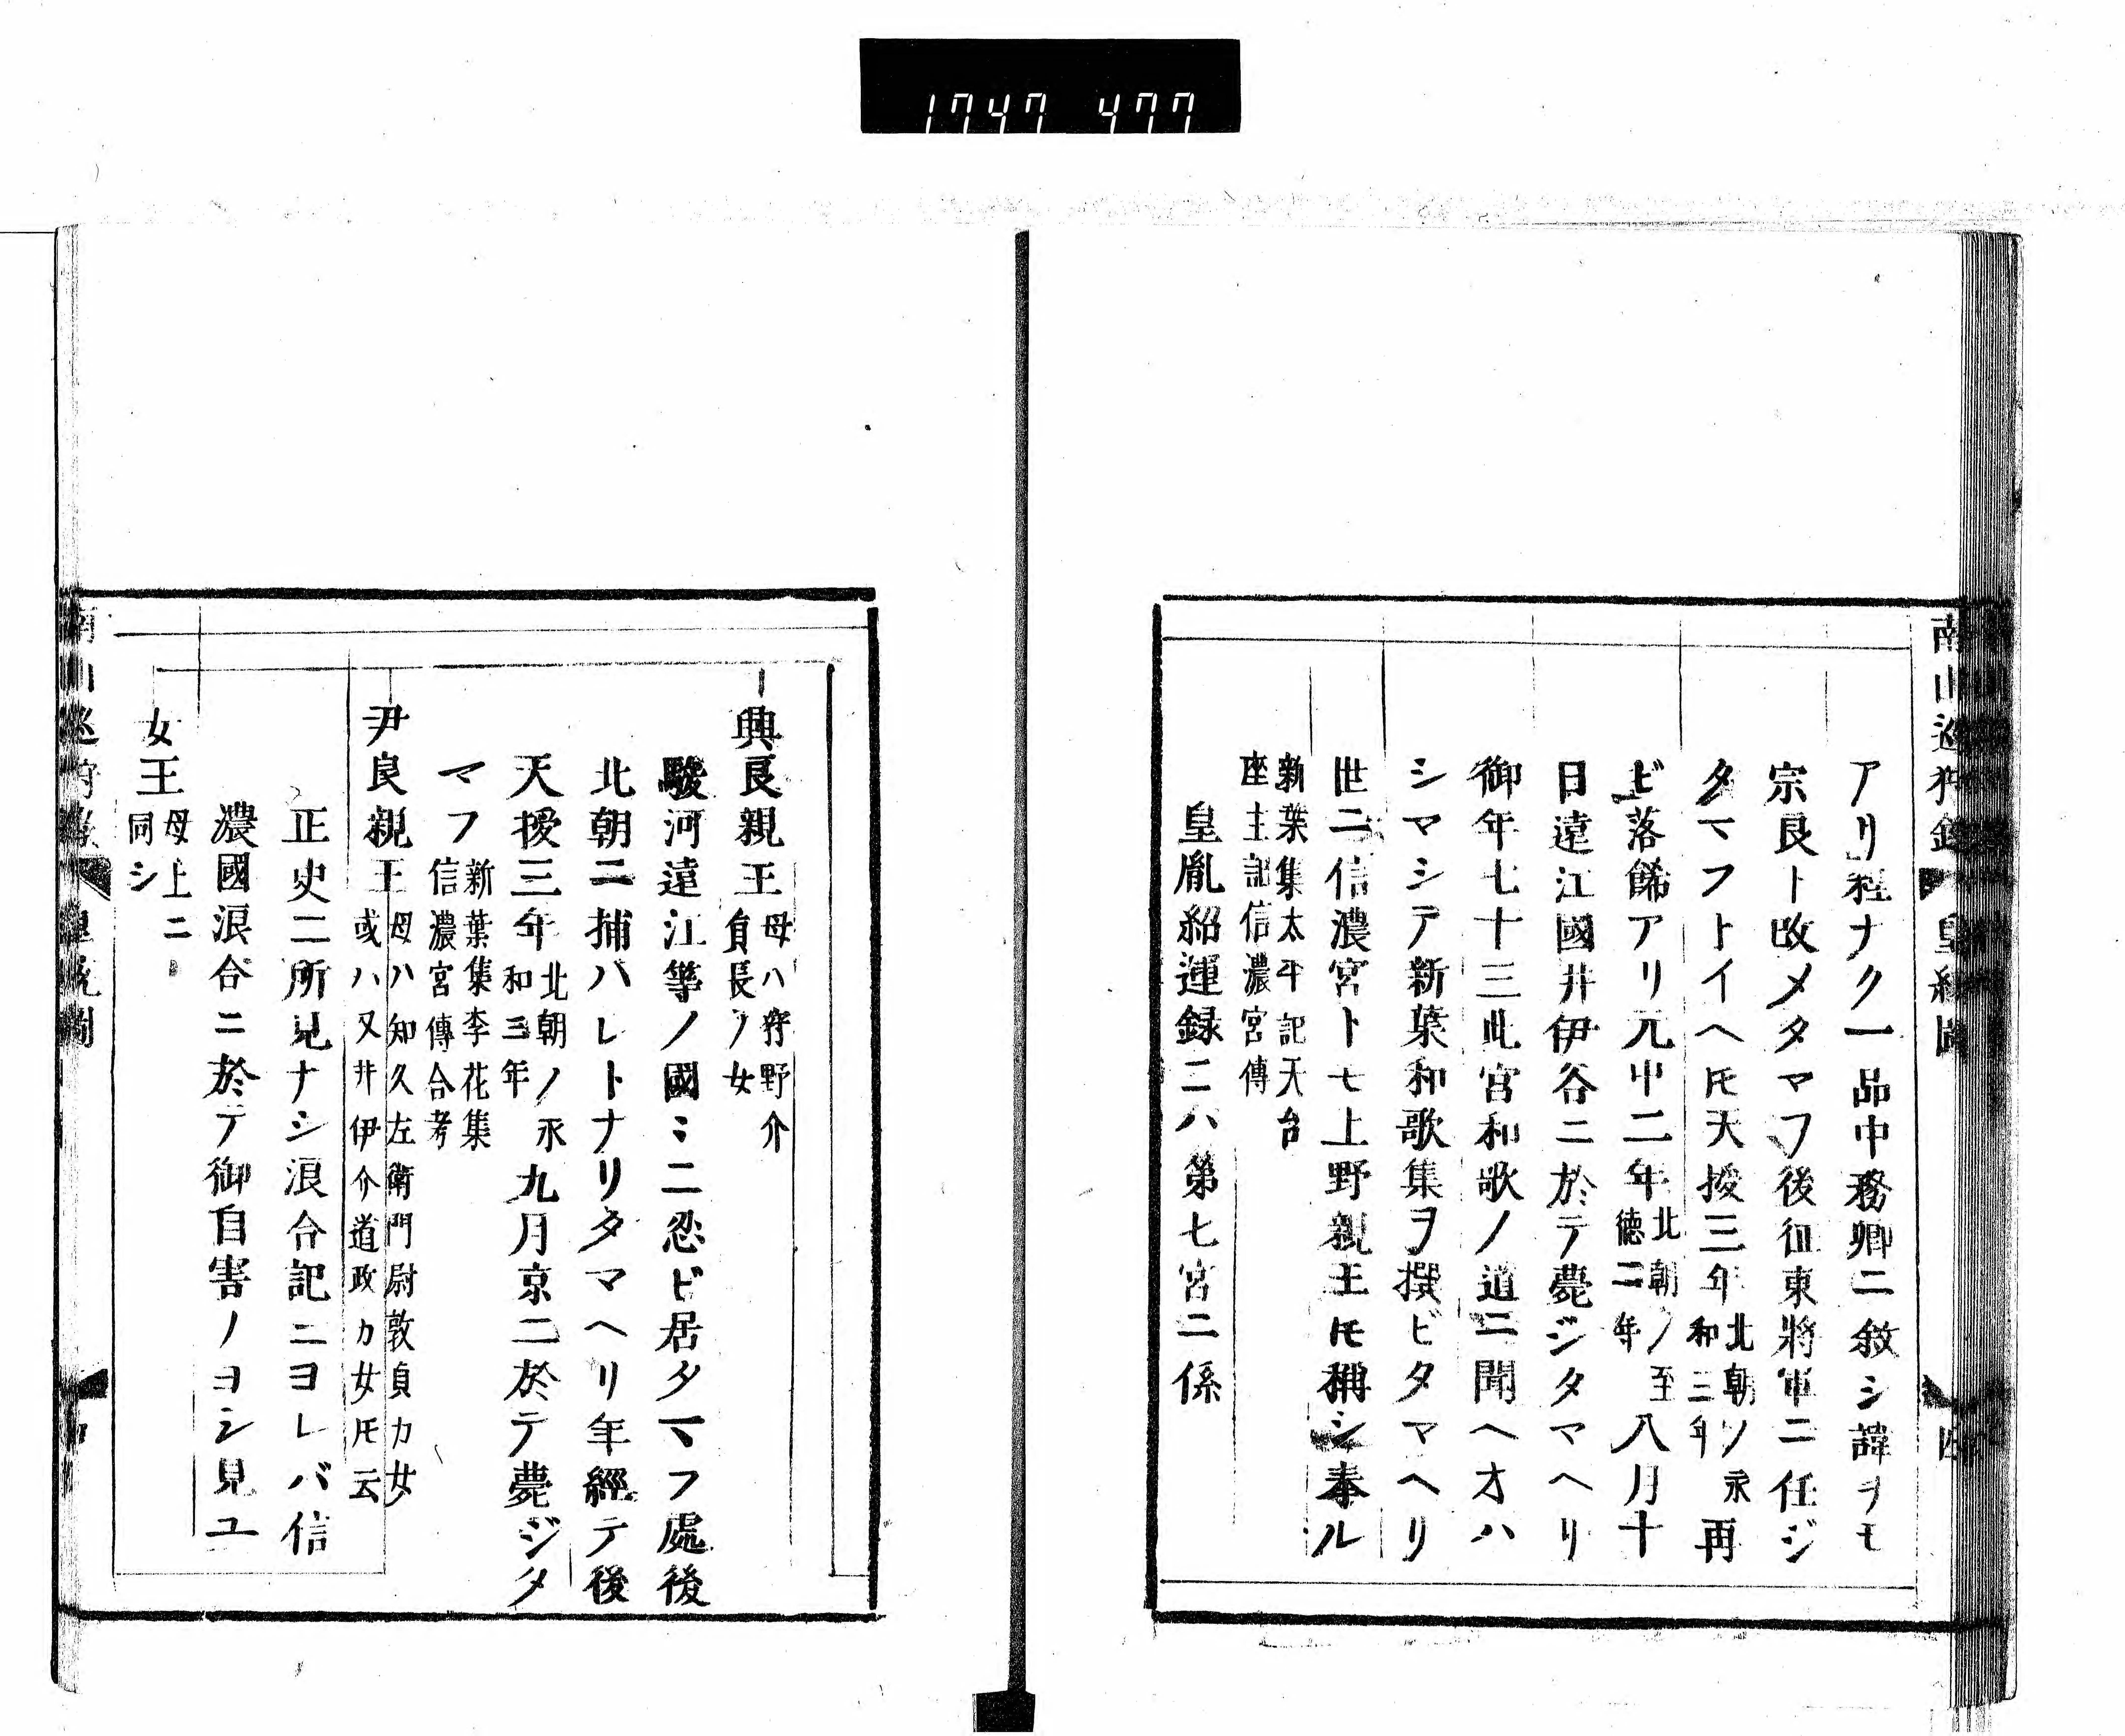 1747 477
南山巡狩録 皇統圖 四
アリ程ナク一品中務卿ニ敘シ諱ヲモ
宗良ト改メタマフ後征東將軍ニ任ジ
タマフトイヘ𪜈天授三年北朝ノ永和三年再
ビ落餝アリ元中二年北朝ノ至徳二年八月十
日遠江國井伊谷ニ於テ薨ジタマヘリ
御年七十三此宮和歌ノ道ニ聞ヘオハ
シマシテ新葉和歌集ヲ撰ビタマヘリ
世ニ信濃宮トモ上野親王𪜈稱シ奉ル
新葉集太平記天台
座主記信濃宮傳
皇胤紹運録ニハ第七宮ニ係
興良親王母ハ狩野介
貞長ノ女
駿河遠江等ノ國ミニ忍ビ居タマフ處後
北朝ニ捕ハレトナリタマヘリ年經テ後
天授三年北朝ノ永和三年九月京ニ於テ薨ジタ
マフ新葉集李花集
信濃宮傳合考
尹良親王母ハ知久左衛門尉敦貞カ女
或ハ又井伊介道政カ女𪜈云
正史ニ所見ナシ浪合記ニヨレバ信
濃國浪合ニ於テ御自害ノヨシ見ユ
女王母上ニ
同シ
南山巡狩録 皇統圖